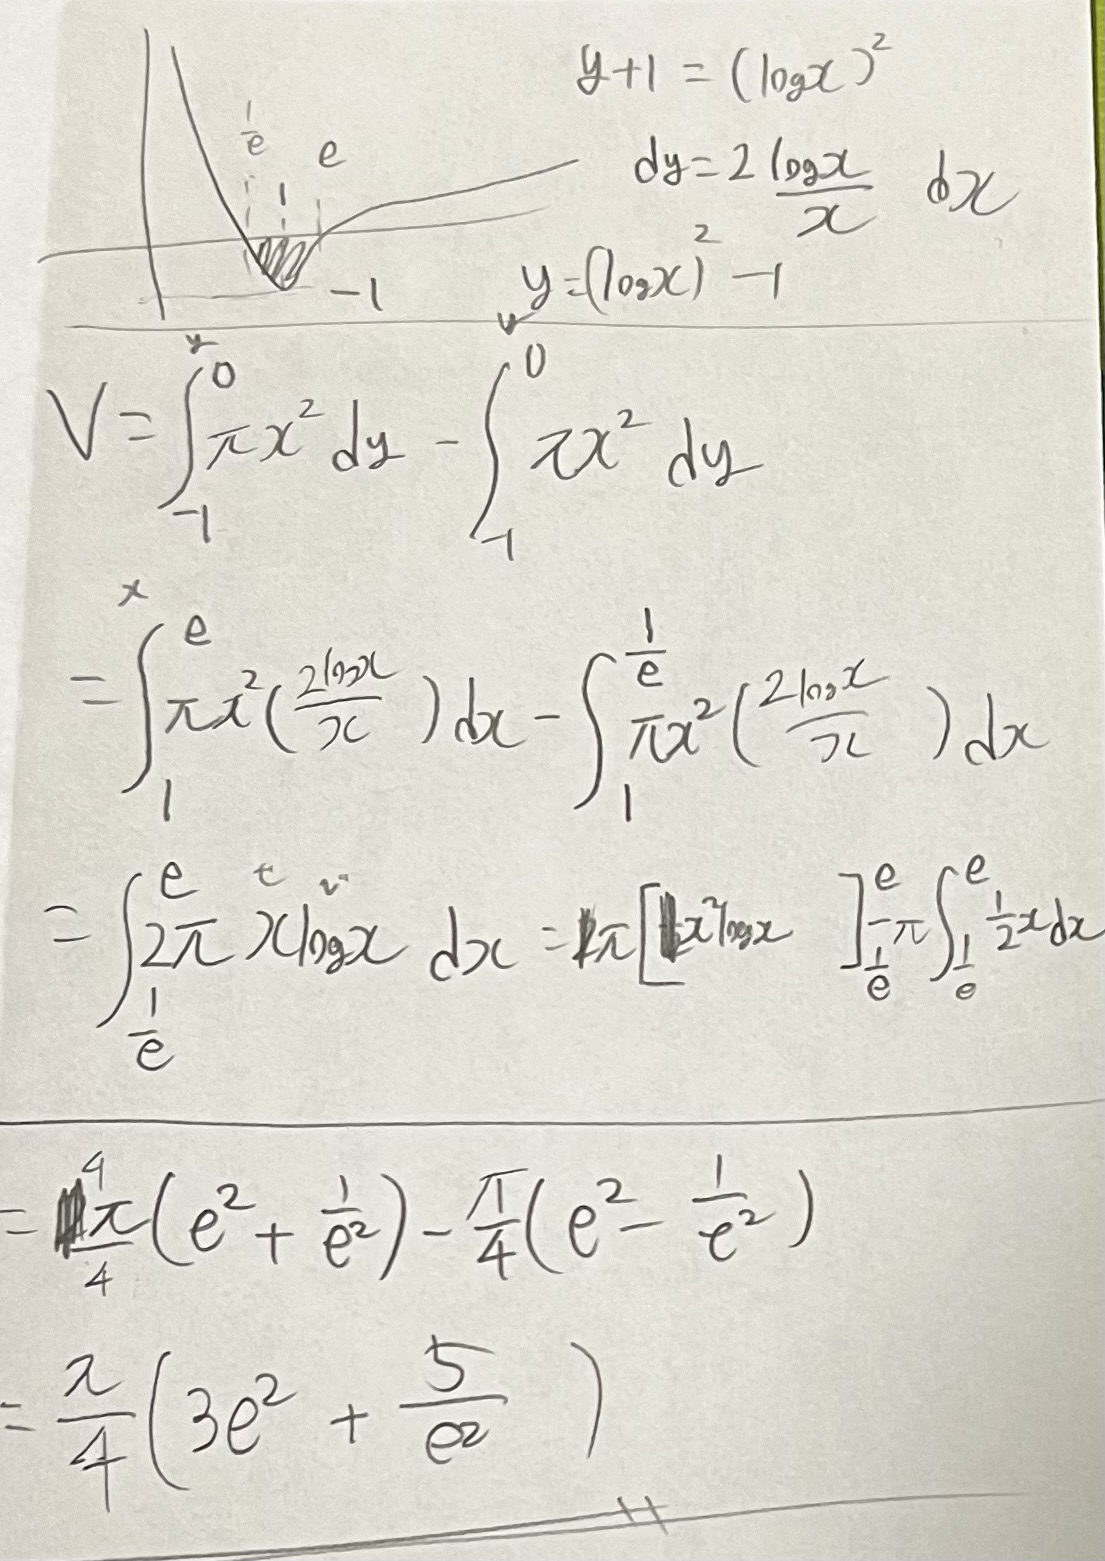 y+1 = (log x)²
1/e
e
1
dy = 2 log x / x dx
-1
y = (log x)² - 1
V = ∫_{-1}^{0} πx² dy - ∫_{-1}^{0} πx² dy
x
= ∫_{1}^{e} πx² (2log x / x) dx - ∫_{1}^{1/e} πx² (2log x / x) dx
= ∫_{1/e}^{e} 2π x log x dx = π [x² log x]_{1/e}^{e} - π ∫_{1/e}^{e} 1/2 x dx
= 4π/4 (e² + 1/e²) - π/4 (e² - 1/e²)
= π/4 (3e² + 5/e²)